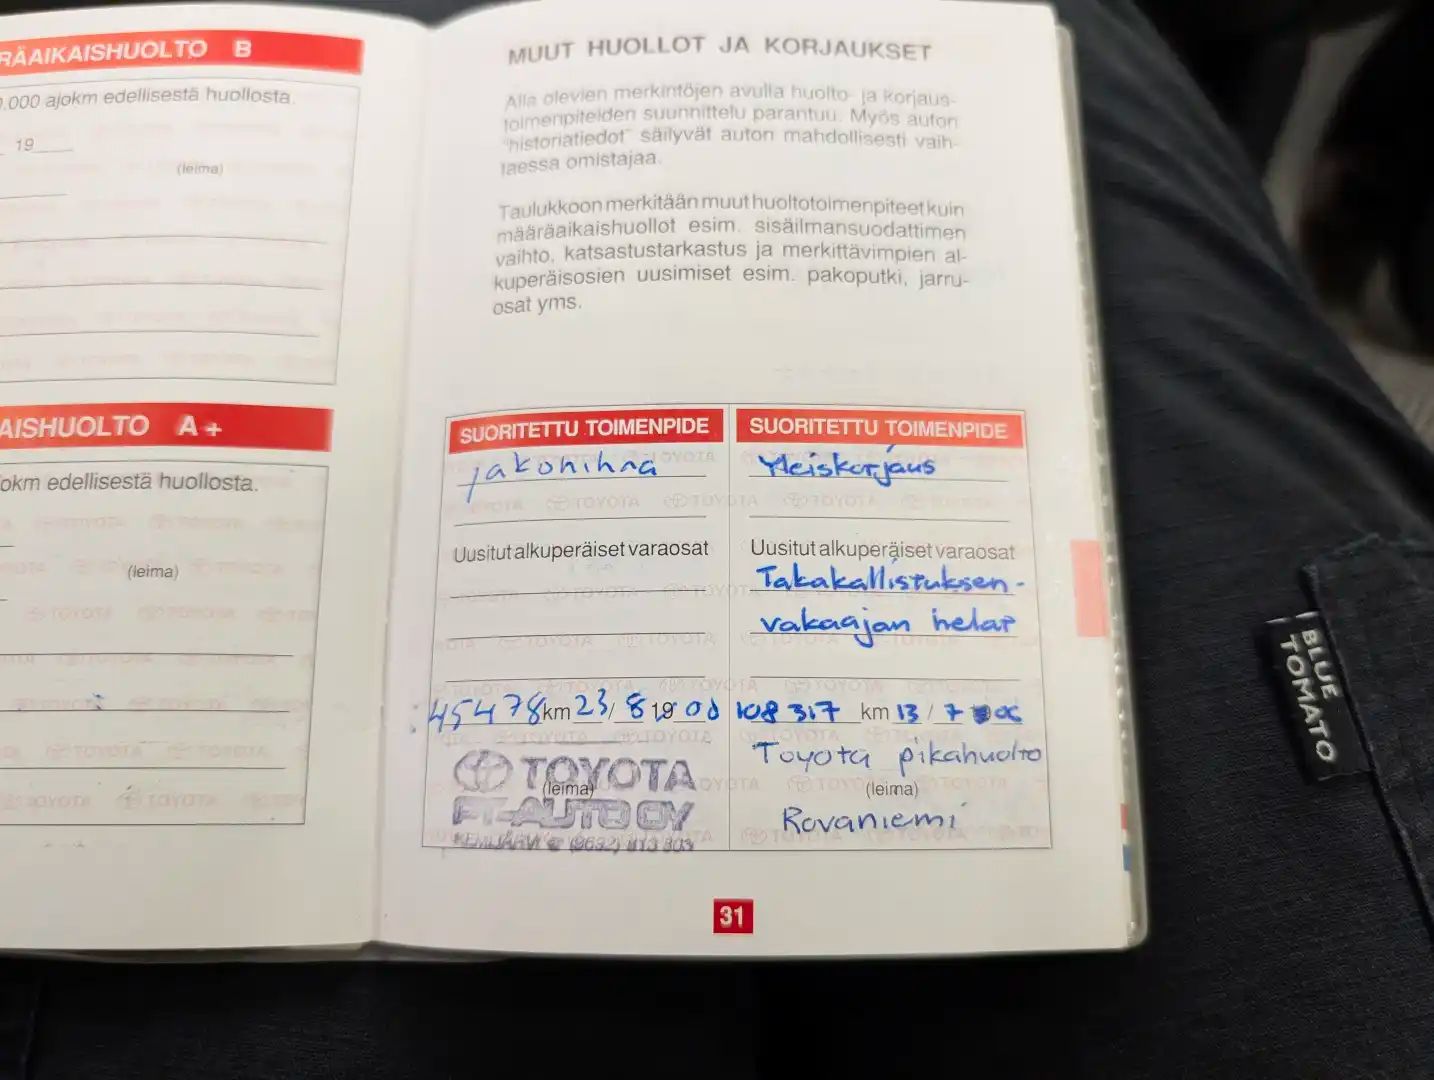 RÄAIKAISHUOLTO B
0.000 ajokm edellisestä huollosta.
19
(leima)
AISHUOLTO A+
okm edellisestä huollosta.
(leima)
MUUT HUOLLOT JA KORJAUKSET
Alla olevien merkintöjen avulla huolto- ja korjaus-
toimenpiteiden suunnittelu parantuu. Myös auton
"historiatiedot" säilyvät auton mahdollisesti vaih-
taessa omistajaa.
Taulukkoon merkitään muut huoltotoimenpiteet kuin
määräaikaishuollot esim. sisäilmansuodattimen
vaihto, katsastustarkastus ja merkittävimpien al-
kuperäisosien uusimiset esim. pakoputki, jarru-
osat yms.
SUORITETTU TOIMENPIDE
jakohihna
Uusitut alkuperäiset varaosat
45478 km 23/8 19 00
TOYOTA
(leima)
FT-AUTO OY
KEMIJÄRVI ☎ (9692) 813 803
SUORITETTU TOIMENPIDE
Yleiskorjaus
Uusitut alkuperäiset varaosat
Takakallistuksen-
vakaajan helat
108 317 km 13 / 7 06
Toyota pikahuolto
(leima)
Rovaniemi
31
BLUE
TOMATO